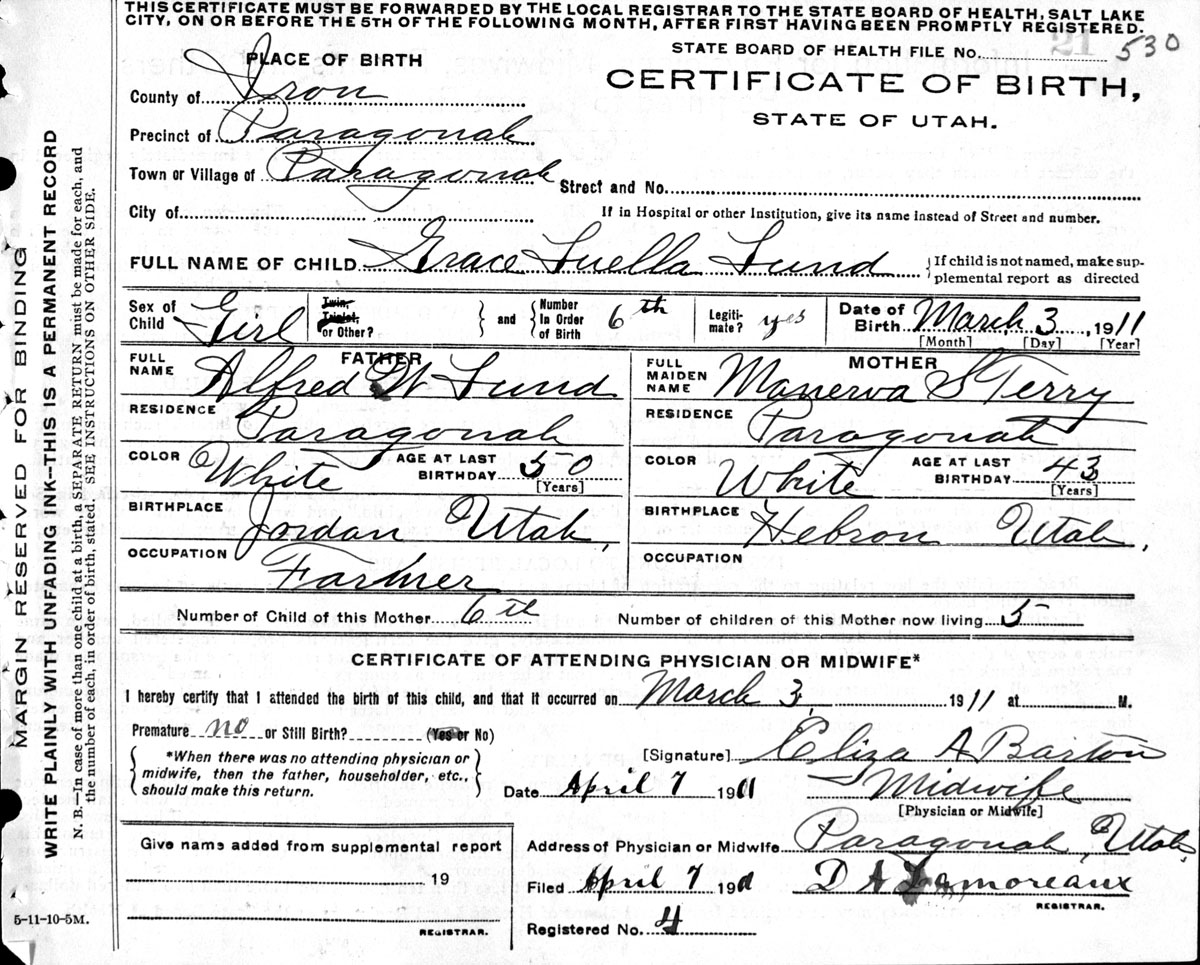 THIS CERTIFICATE MUST BE FORWARDED BY THE LOCAL REGISTRAR TO THE STATE BOARD OF HEALTH, SALT LAKE
CITY, ON OR BEFORE THE 5TH OF THE FOLLOWING MONTH, AFTER FIRST HAVING BEEN PROMPTLY REGISTERED.
21
STATE BOARD OF HEALTH FILE No. 530
PLACE OF BIRTH
CERTIFICATE OF BIRTH,
STATE OF UTAH.
County of Iron
Precinct of Paragonah
Town or Village of Paragonah Street and No.
City of If in Hospital or other Institution, give its name instead of Street and number.
FULL NAME OF CHILD Grace Luella Lund {If child is not named, make sup-
plemental report as directed
Sex of Child Girl Twin, Triplet, or Other? and Number In Order of Birth 6th Legiti- mate? yes Date of Birth March 3, 1911
[Month] [Day] [Year]
FATHER MOTHER
FULL NAME Alfred W Lund FULL MAIDEN NAME Manerva S Terry
RESIDENCE Paragonah RESIDENCE Paragonah
COLOR White AGE AT LAST BIRTHDAY 50 [Years] COLOR White AGE AT LAST BIRTHDAY 43 [Years]
BIRTHPLACE Jordan Utah, BIRTHPLACE Hebron Utah,
OCCUPATION Farmer OCCUPATION
Number of Child of this Mother 6th Number of children of this Mother now living 5
CERTIFICATE OF ATTENDING PHYSICIAN OR MIDWIFE*
I hereby certify that I attended the birth of this child, and that it occurred on March 3, 1911 at M.
Premature no or Still Birth? (Yes or No)
{ *When there was no attending physician or
midwife, then the father, householder, etc.,
should make this return. }
[Signature] Eliza A Barton
Date April 7 1911 Midwife
[Physician or Midwife]
Address of Physician or Midwife Paragonah, Utah,
Filed April 7 1911 D A Lamoreaux
REGISTRAR.
Registered No. 4
Give name added from supplemental report
19
REGISTRAR.
5-11-10-5M.
MARGIN RESERVED FOR BINDING
WRITE PLAINLY WITH UNFADING INK--THIS IS A PERMANENT RECORD
N. B.--In case of more than one child at a birth, a SEPARATE RETURN must be made for each, and
the number of each, in order of birth, stated. SEE INSTRUCTIONS ON OTHER SIDE.